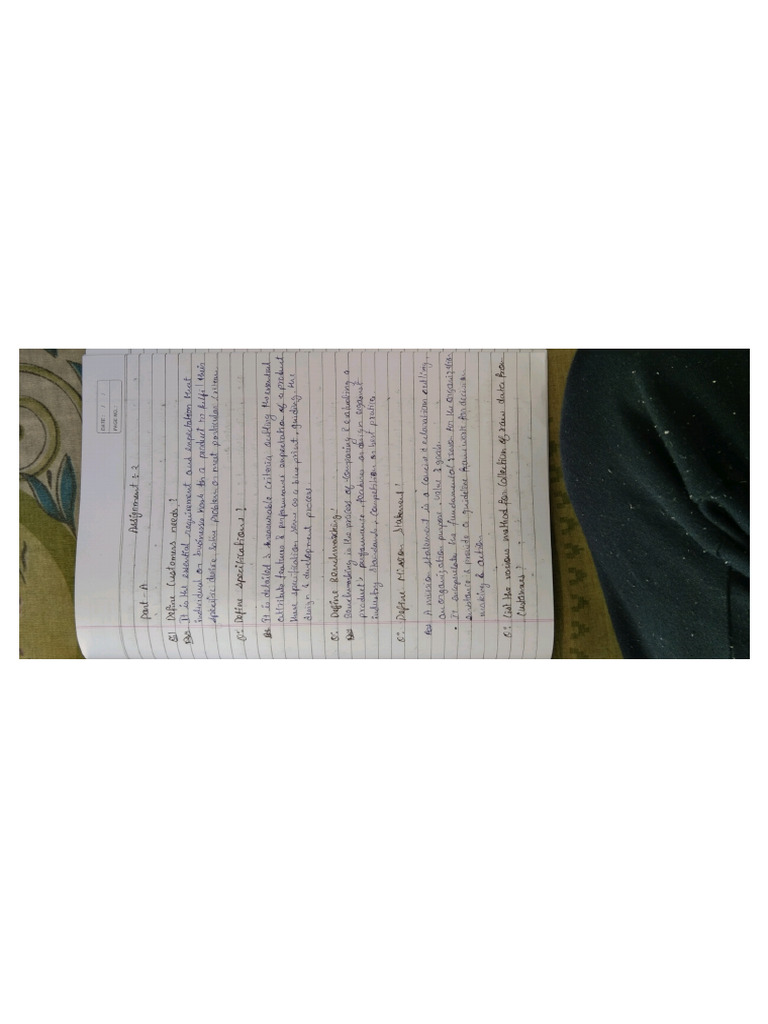 DATE: / /
PAGE NO.
Assignment : 2
Part - A
Q1 Define Customers needs?
Ans It is the essential requirement and expectation that
individual or businesses have for a product to fulfil their
specific desire, solve problem or meet particular
Q: Define specifications?
Ans It is detailed & measurable criteria outling the essential
attribute features & performances expectation of a product
these specification serve as a blue print, guiding the
design & development process
Q: Define Benchmarking!
Ans Benchmarking is the process of comparing & evaluating a
product's performance, or design against
industry standards, competition or best practice
Q: Define Mission Statement!
Ans A mission statement is a concise declaration outling,
an organization purpose, value & goals.
• It the fundamental reason for the organization
existance & provide a guideline framework for decision
making & action
Q: List the various method for collection of raw data from
Customers?